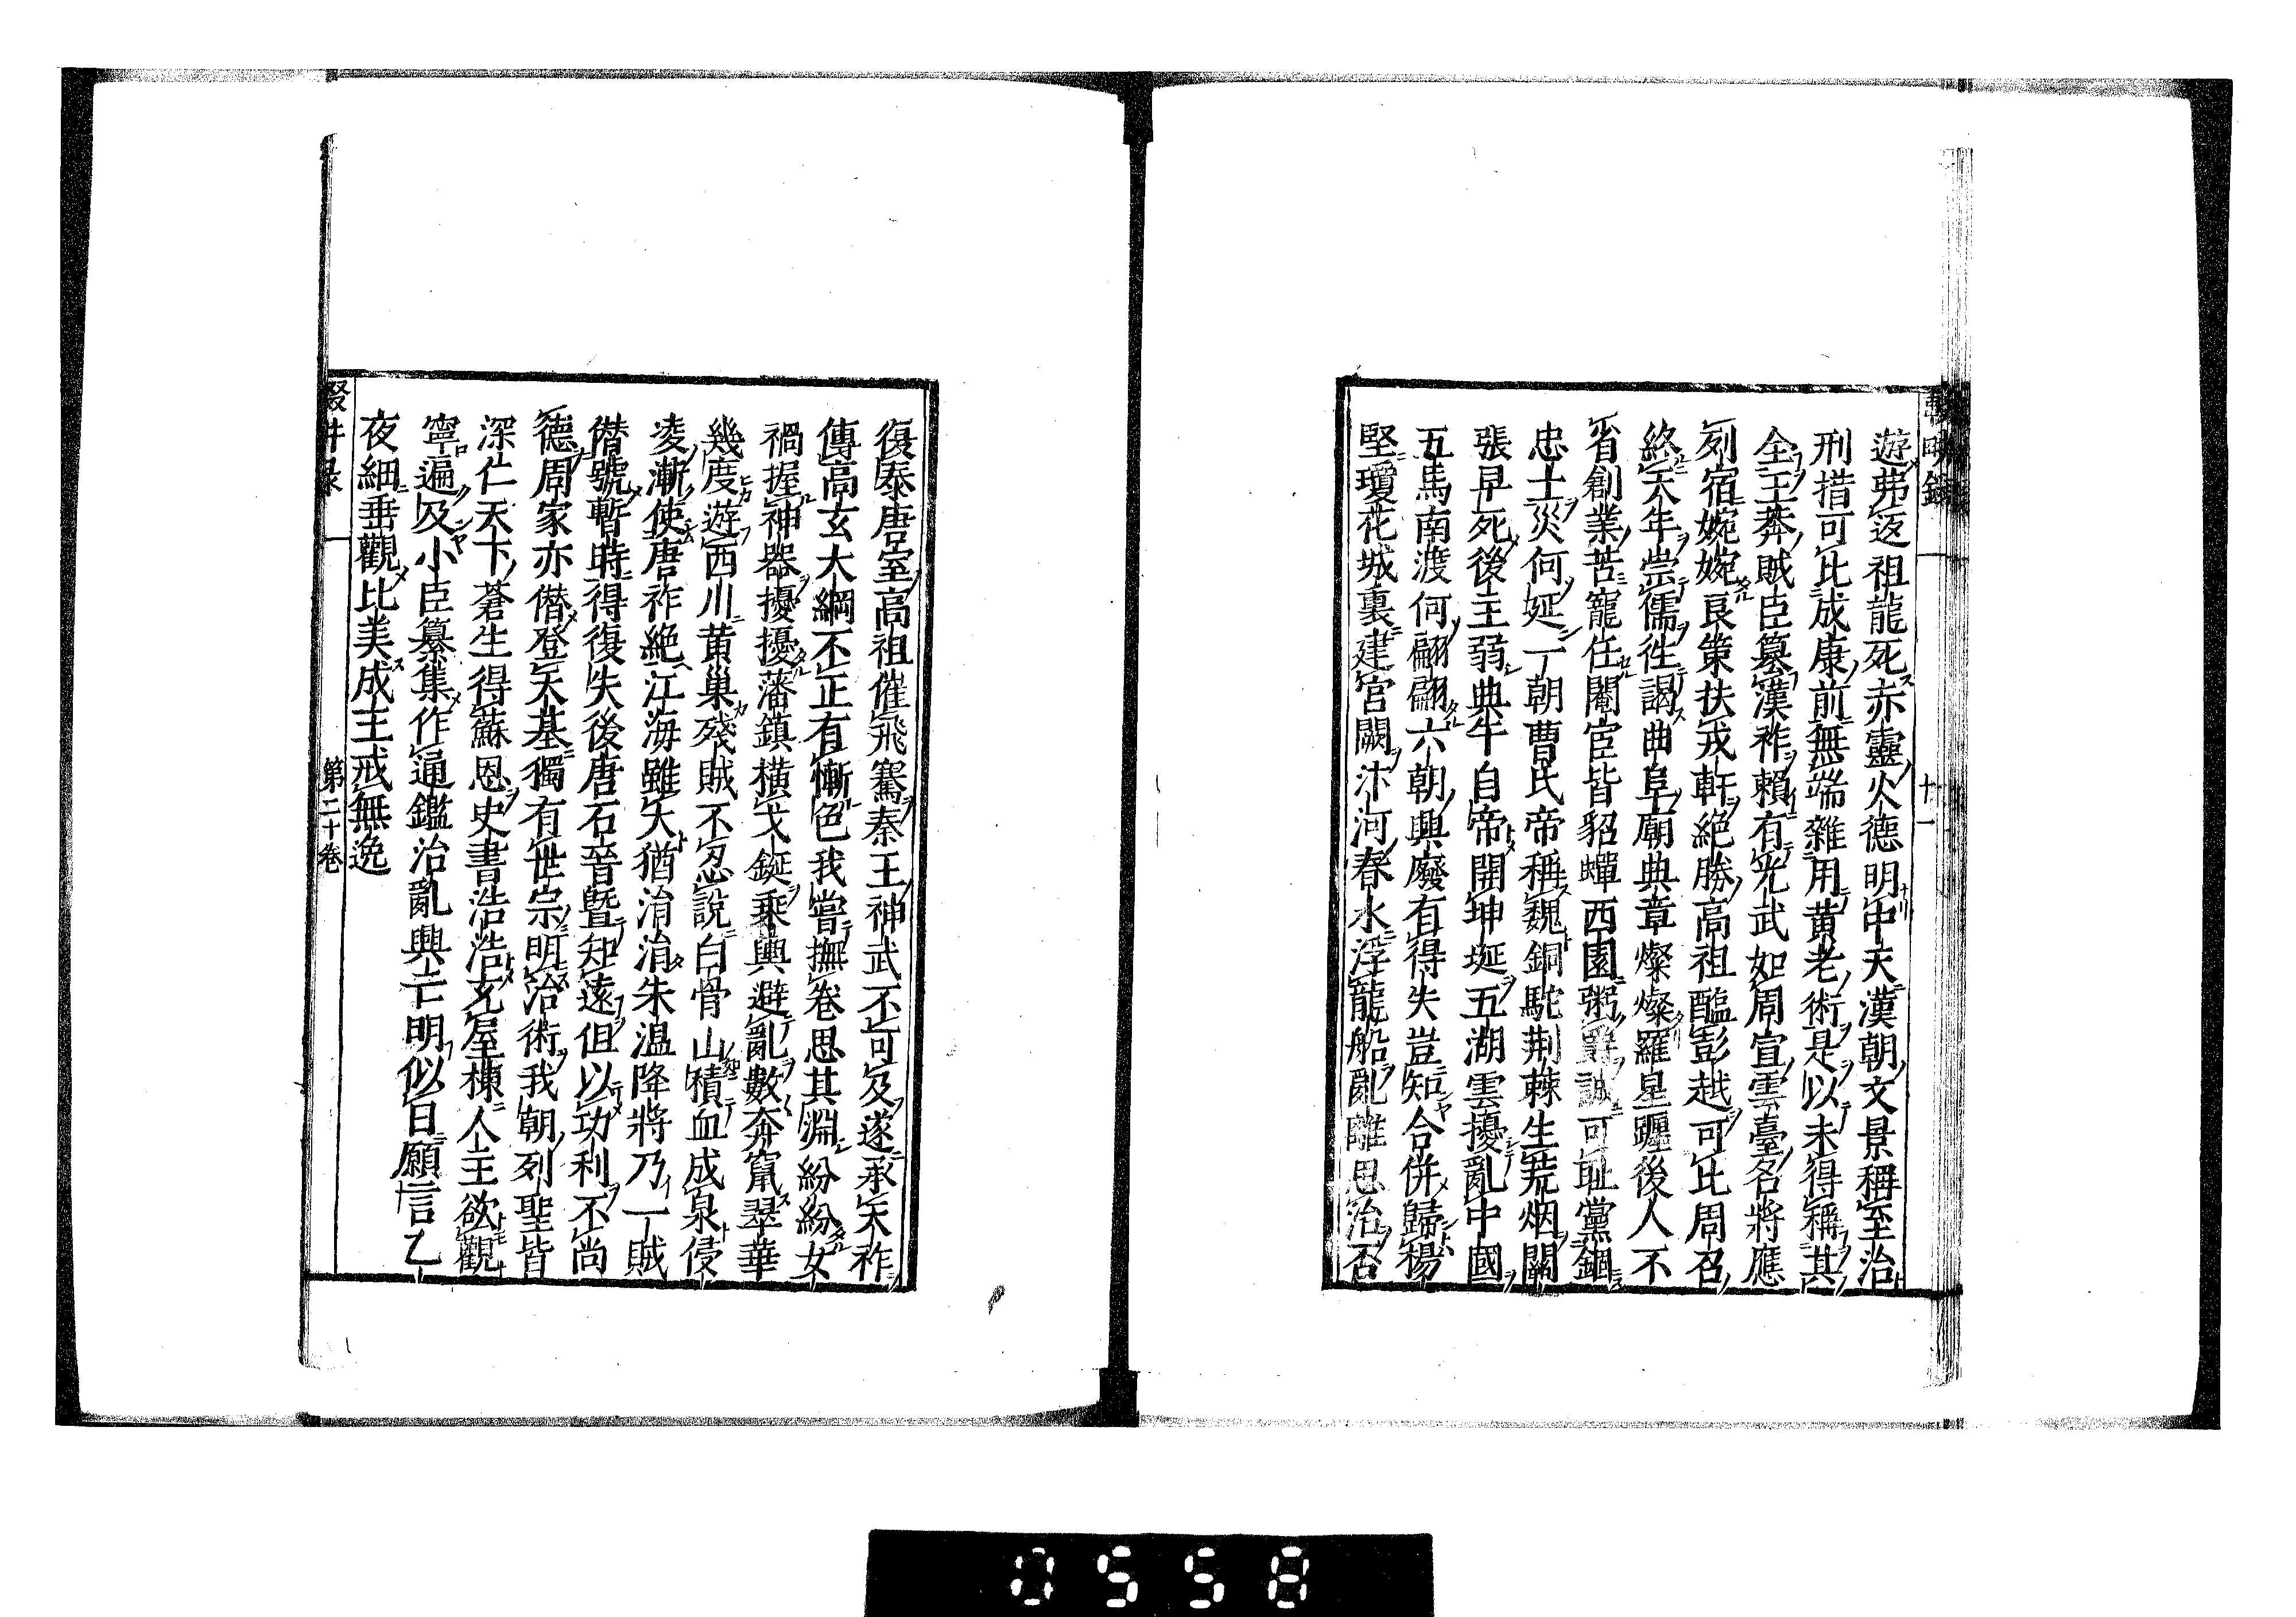 遊弗返祖龍死亦靈火德明中天漢朝文景稱至治
刑措可比成康前無端雜用黃老術是以未得稱其
全王莽賊臣篡漢祚賴有光武如周宣雲臺名將應
列宿婉婉良策扶戎軒絶勝高祖醢彭越可比周召
終天年崇儒徃謁曲阜廟典章燦燦羅星躔後人不
省創業苦寵任閹宦皆貂蟬西園鬻爵誠可耻黨錮
忠士災何延一朝曹氏帝稱魏銅駝荆棘生荒烟關
張早死後主弱典午自帝開坤埏五湖雲擾亂中國
五馬南渡何翩翩六朝興廢有得失豈知合併歸楊
堅瓊花城裏建宮闕汴河春水浮龍船亂離思治否
十一
復泰唐室高祖催飛騫秦王神武不可及遂承天祚
傳高玄大綱不正有慚色我嘗撫卷思其淵紛紛女
禍握神器擾擾藩鎮橫戈鋋乘輿避亂數奔竄翠華
幾度遊西川黃巢殘賊不忍說白骨山積血成泉侵
凌漸使唐祚絶江海雖大猶涓涓朱温降將乃一賊
僭號暫時得復失後唐石晉曁知遠但以功利不尚
德周家亦僭登天基獨有世宗明治術我朝列聖皆
深仁天下蒼生得蘇息史書浩浩充屋棟人主欲觀
寧遍及小臣纂集作通鑑治亂興亡明似日願言乙
夜細垂觀比美成王戒無逸
第二十卷
0558